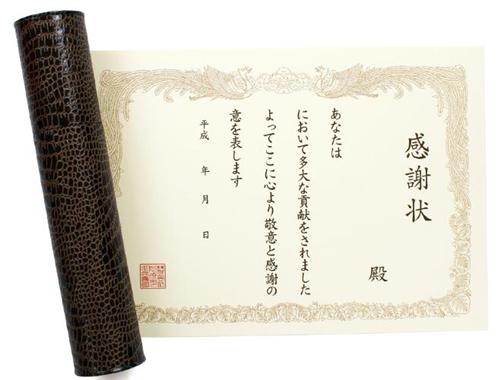 感謝状
殿
あなたは
において多大な貢献をされました
よってここに心より敬意と感謝の
意を表します
平成　年　月　日